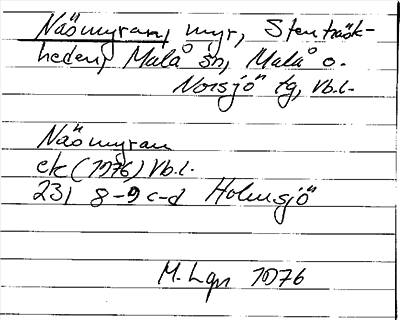 Näsmyran, myr, Stenträsk-
heden, Malå sn, Malå o.
Norsjö tg, Vb.l.
Näsmyran
ek (1976) Vb.l.
231 8-9 c-d Holmsjö
M. Lgn 1976